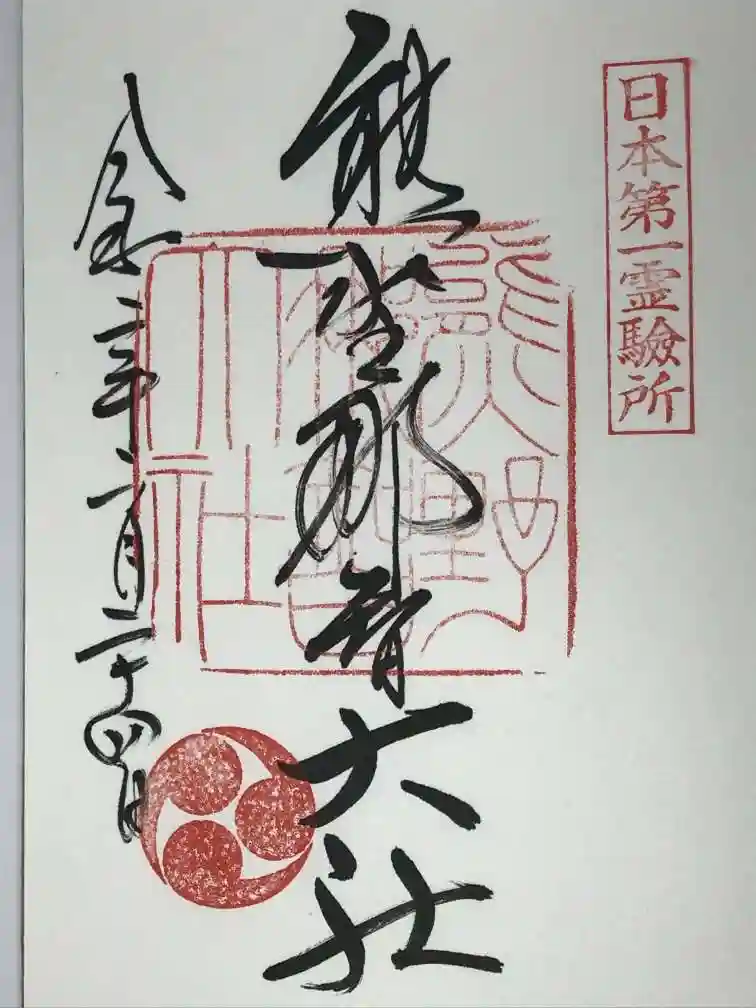 日本第一霊験所
熊野那智大社
熊野
那智
大社
令和二年十二月二十四日